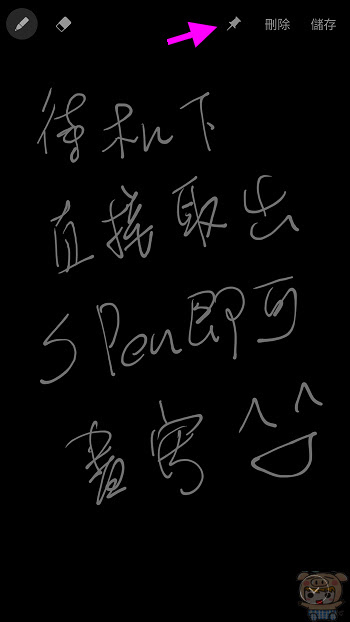 刪除 儲存
待机下
直接取出
S Pen即可
書寫